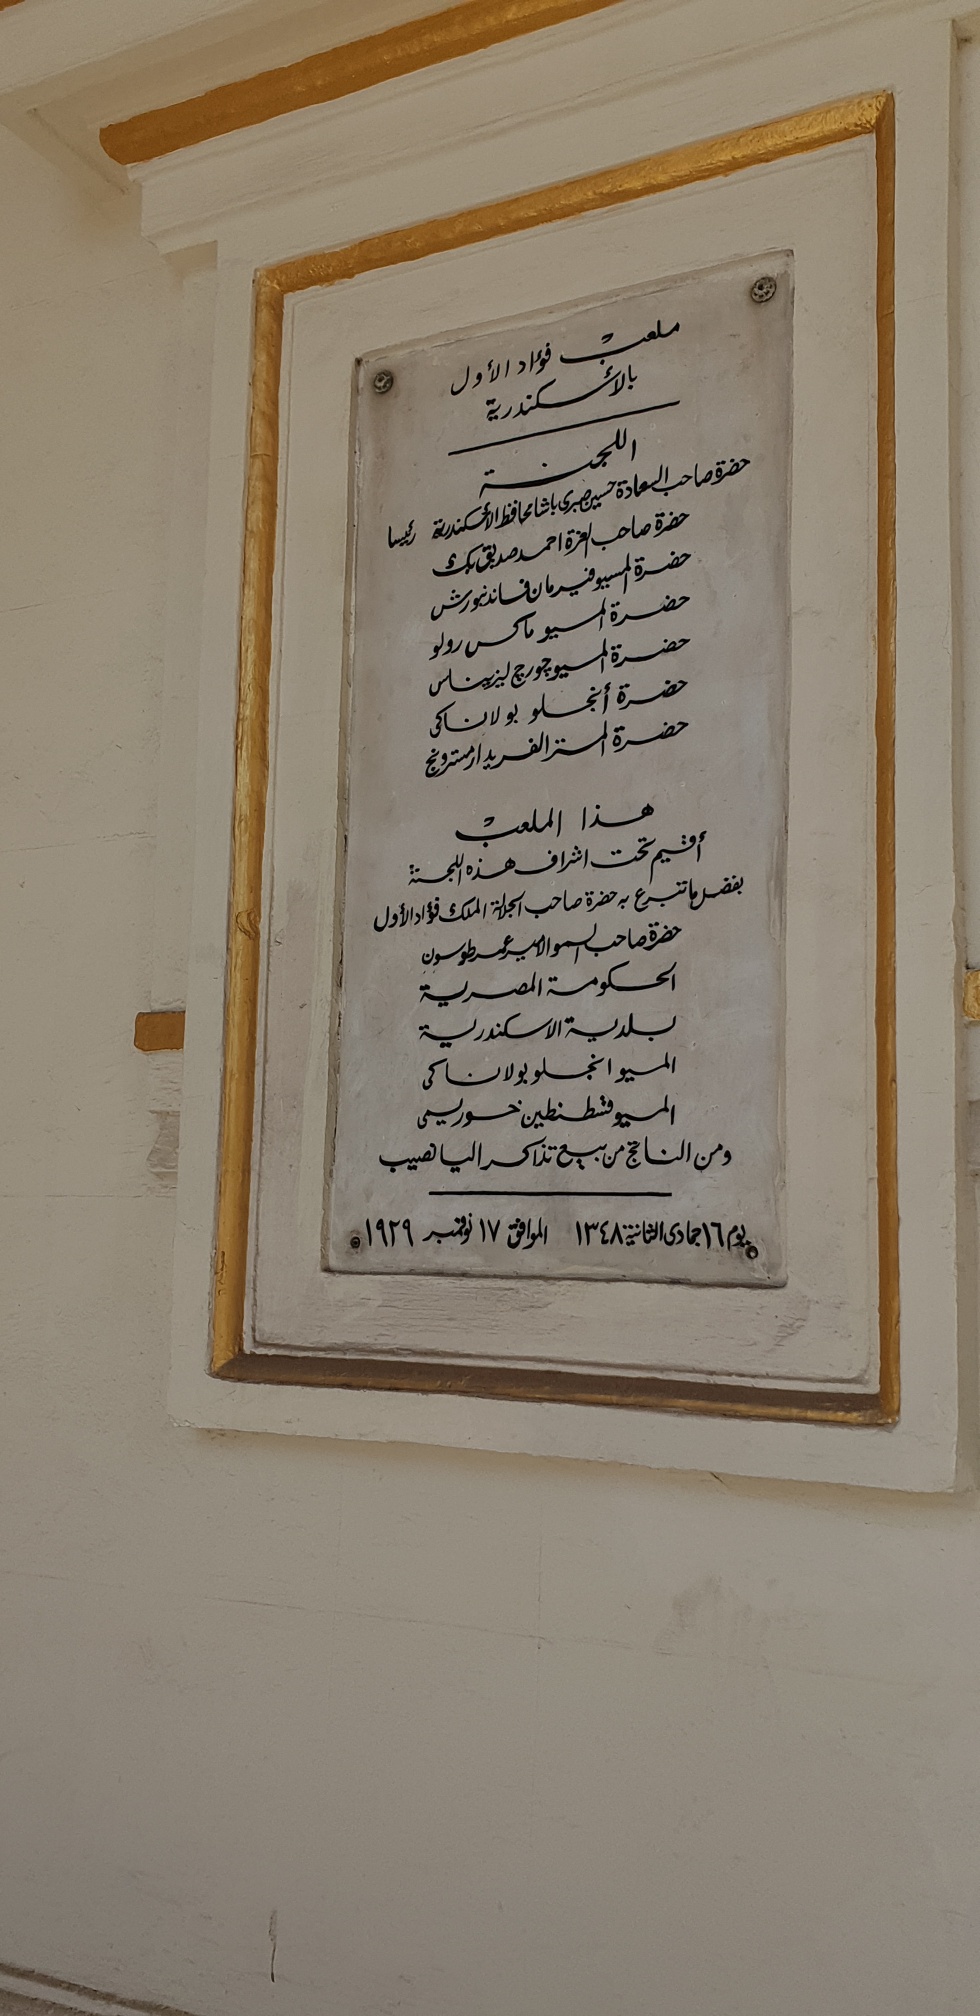 ملعب فؤاد الأول
بالأسكندرية
اللجنة
حضرة صاحب السعادة حسين صبرى باشا محافظ الأسكندرية رئيسا
حضرة صاحب العزة احمد صديق بك
حضرة المسيو فيرمان فاندنبورش
حضرة المسيو ماكس رولو
حضرة المسيو چورچ ليزيناس
حضرة أنجلو بولاناكى
حضرة المستر الفريد ارمسترونج
هذا الملعب
أقيم تحت اشراف هذه اللجنة
بفضل ما تبرع به حضرة صاحب الجلالة الملك فؤاد الأول
حضرة صاحب السمو الامير عمر طوسون
الحكومة المصرية
بلدية الاسكندرية
المسيو انجلو بولاناكى
المسيو قسطنطين خوريمى
ومن الناتج من بيع تذاكر اليانصيب
يوم ١٦ جمادى الثانية ١٣٤٨ الموافق ١٧ نوفمبر ١٩٢٩